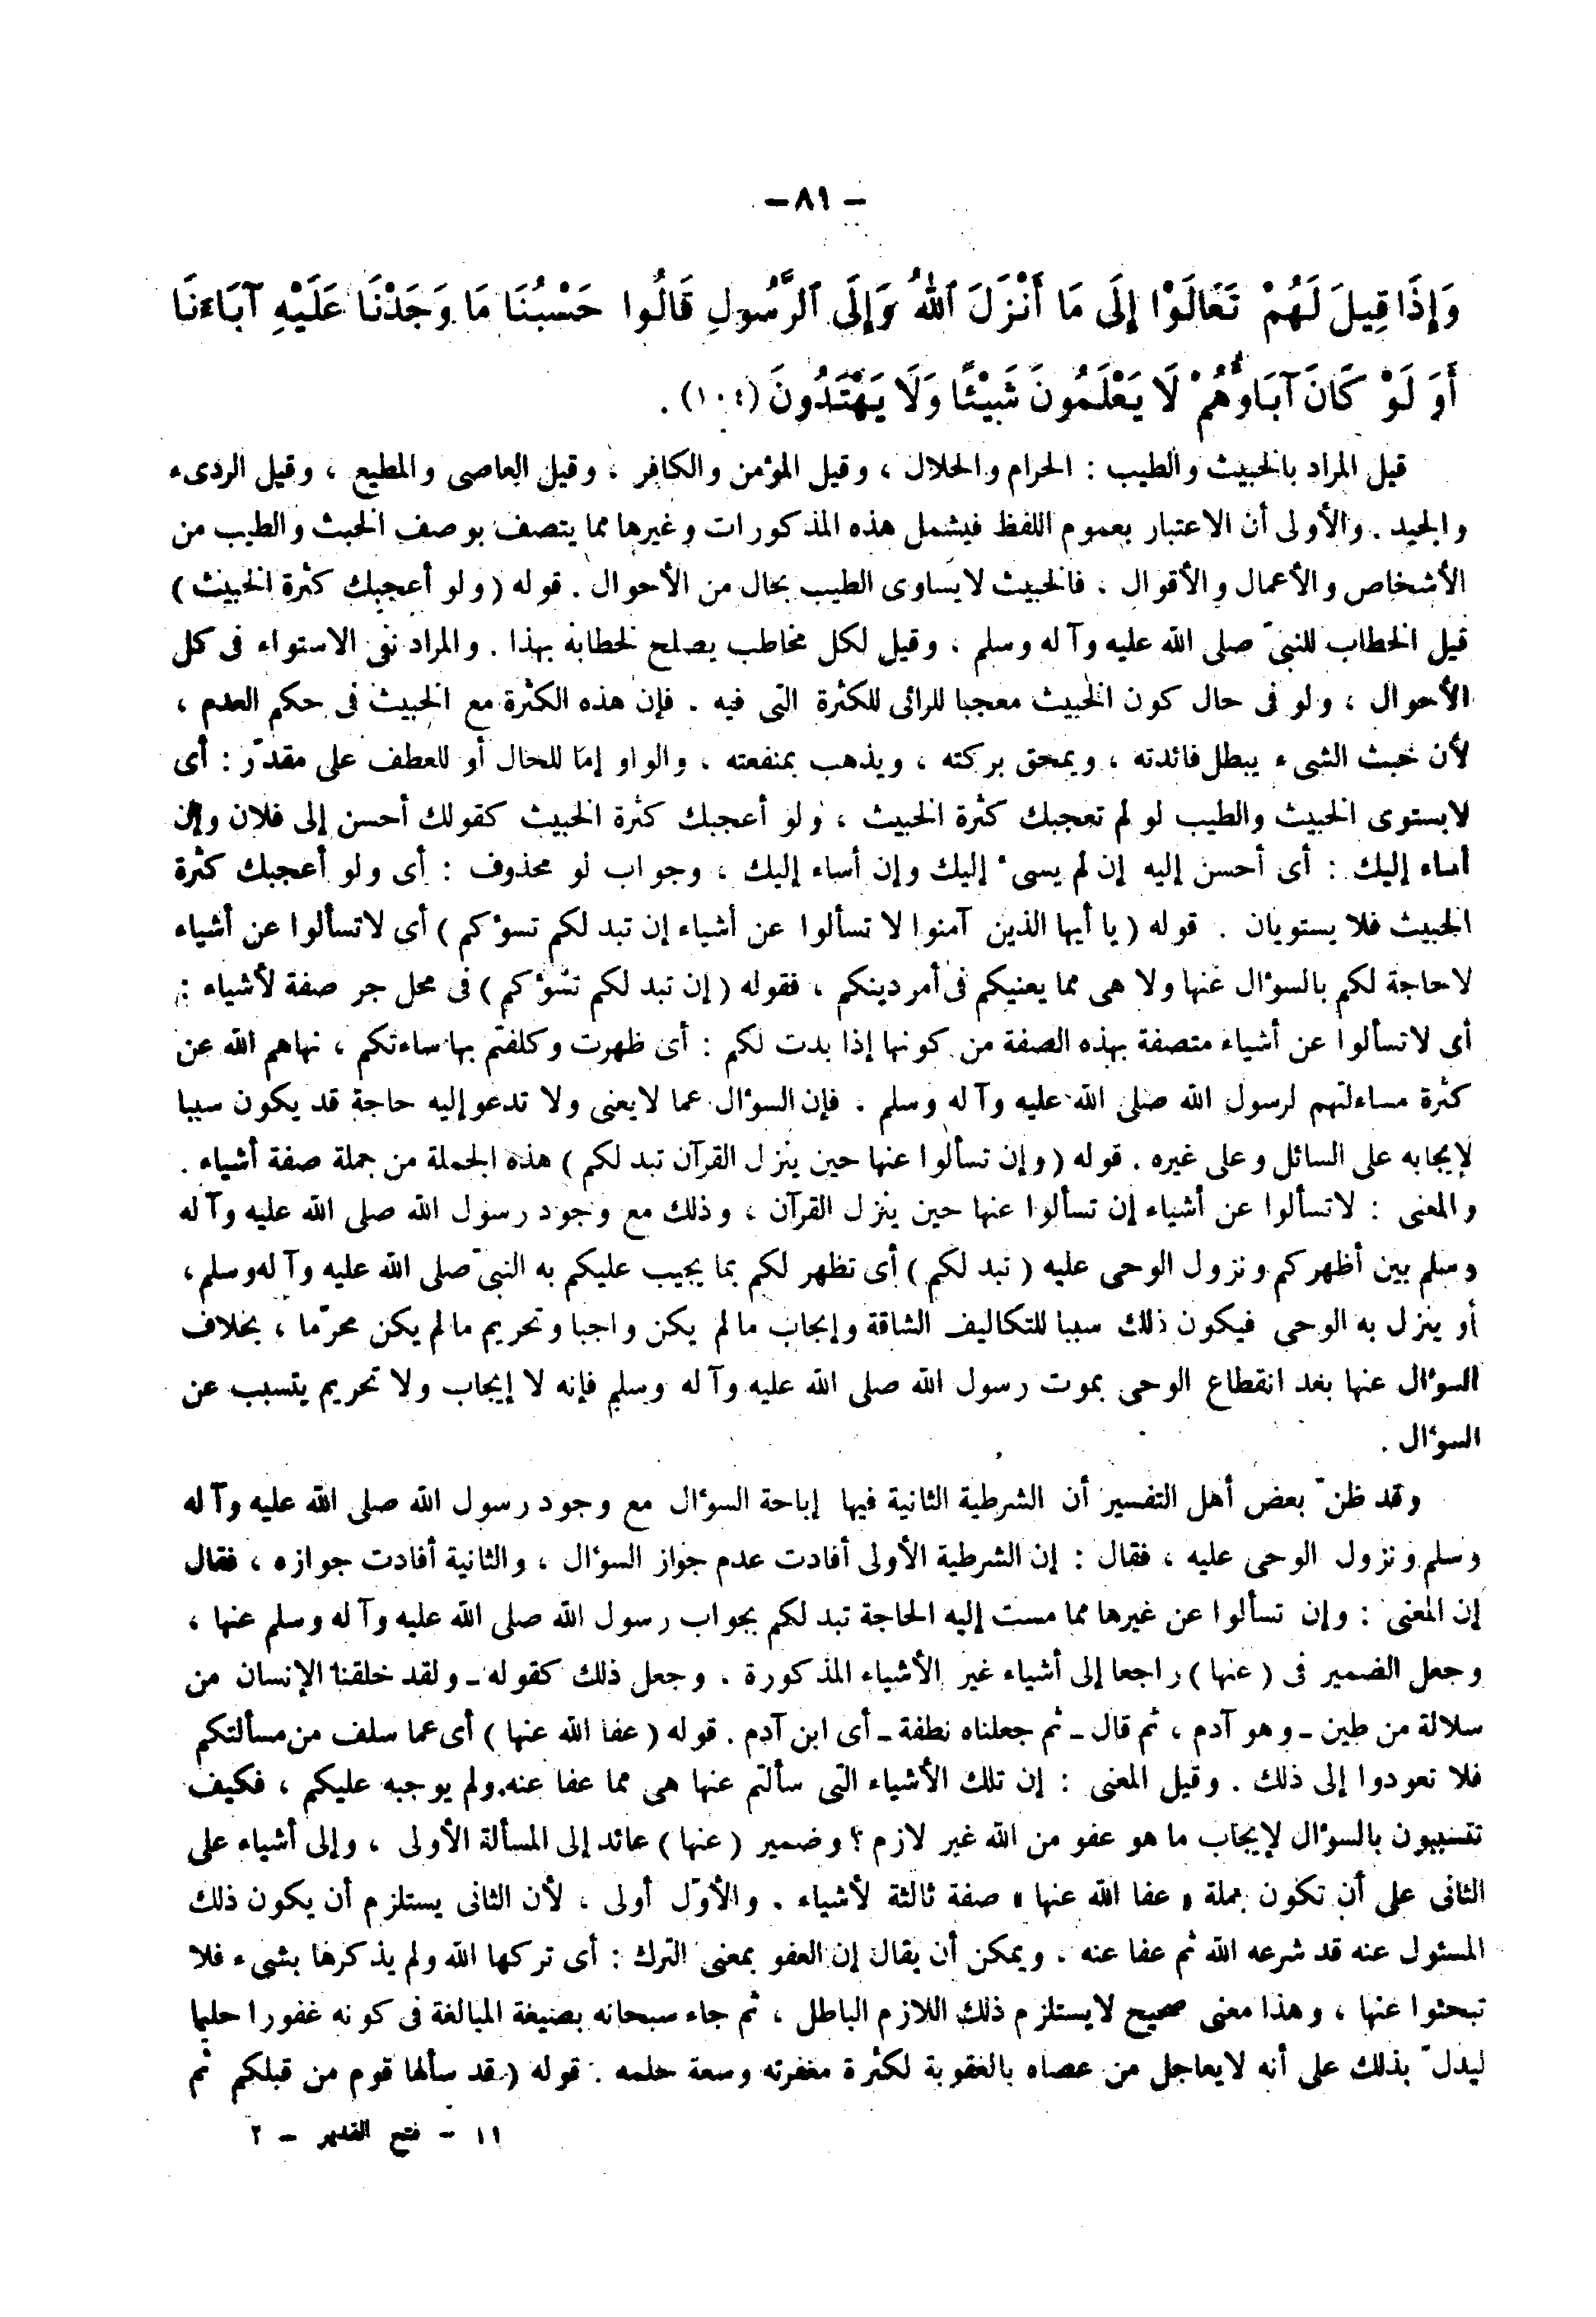 – ٨١ –
وَإِذَا قِيلَ لَهُمْ تَعَالَوْا إِلَى مَا أَنْزَلَ ٱللهُ وَإِلَى ٱلرَّسُولِ قَالُوا حَسْبُنَا مَا وَجَدْنَا عَلَيْهِ آبَاءَنَا
أَوَ لَوْ كَانَ آبَاؤُهُمْ لَا يَعْلَمُونَ شَيْئًا وَلَا يَهْتَدُونَ (١٠٤) .
قيل المراد بالخبيث والطيب : الحرام والحلال ، وقيل المؤمن والكافر ، وقيل العاصى والمطيع ، وقيل الردىء
والجيد . والأولى أن الاعتبار بعموم اللفظ فيشمل هذه المذكورات وغيرها مما يتصف بوصف الخبث والطيب من
الأشخاص والأعمال والأقوال . فالخبيث لا يساوى الطيب بحال من الأحوال . قوله ( ولو أعجبك كثرة الخبيث )
قيل الخطاب للنبىّ صلى الله عليه وآله وسلم ، وقيل لكل مخاطب يصلح لخطابه بهذا . والمراد نفى الاستواء فى كل
الأحوال ، ولو فى حال كون الخبيث معجبا للرائى للكثرة التى فيه . فإن هذه الكثرة مع الخبيث فى حكم العدم ،
لأن خبث الشىء يبطل فائدته ، ويمحق بركته ، ويذهب بمنفعته ، والواو إما للحال أو للعطف على مقدّر : أى
لا يستوى الخبيث والطيب لو لم تعجبك كثرة الخبيث ، ولو أعجبك كثرة الخبيث كقولك أحسن إلى فلان وإن
أساء إليك : أى أحسن إليه إن لم يسىء إليك وإن أساء إليك ، وجواب لو محذوف : أى ولو أعجبك كثرة
الخبيث فلا يستويان . قوله ( يا أيها الذين آمنوا لا تسألوا عن أشياء إن تبد لكم تسؤكم ) أى لا تسألوا عن أشياء
لا حاجة لكم بالسؤال عنها ولا هى مما يعنيكم فى أمر دينكم ، فقوله ( إن تبد لكم تسؤكم ) فى محل جر صفة لأشياء :
أى لا تسألوا عن أشياء متصفة بهذه الصفة من كونها إذا بدت لكم : أى ظهرت وكلفتم بها ساءتكم ، نهاهم الله عن
كثرة مساءلتهم لرسول الله صلى الله عليه وآله وسلم . فإن السؤال عما لا يعنى ولا تدعو إليه حاجة قد يكون سببا
لإيجابه على السائل وعلى غيره . قوله ( وإن تسألوا عنها حين ينزل القرآن تبد لكم ) هذه الجملة من جملة صفة أشياء .
والمعنى : لا تسألوا عن أشياء إن تسألوا عنها حين ينزل القرآن ، وذلك مع وجود رسول الله صلى الله عليه وآله
وسلم بين أظهركم ونزول الوحى عليه ( تبد لكم ) أى تظهر لكم بما يجيب عليكم به النبىّ صلى الله عليه وآله وسلم ،
أو ينزل به الوحى فيكون ذلك سببا للتكاليف الشاقة وإيجاب ما لم يكن واجبا وتحريم ما لم يكن محرّما ، بخلاف
السؤال عنها بعد انقطاع الوحى بموت رسول الله صلى الله عليه وآله وسلم فإنه لا إيجاب ولا تحريم يتسبب عن
السؤال .
وقد ظنّ بعض أهل التفسير أن الشرطية الثانية فيها إباحة السؤال مع وجود رسول الله صلى الله عليه وآله
وسلم ونزول الوحى عليه ، فقال : إن الشرطية الأولى أفادت عدم جواز السؤال ، والثانية أفادت جوازه ، فقال
إن المعنى : وإن تسألوا عن غيرها مما مست إليه الحاجة تبد لكم بجواب رسول الله صلى الله عليه وآله وسلم عنها ،
وجعل الضمير فى ( عنها ) راجعا إلى أشياء غير الأشياء المذكورة . وجعل ذلك كقوله ـ ولقد خلقنا الإنسان من
سلالة من طين ـ وهو آدم ، ثم قال ـ ثم جعلناه نطفة ـ أى ابن آدم . قوله ( عفا الله عنها ) أى عما سلف من مسألتكم
فلا تعودوا إلى ذلك . وقيل المعنى : إن تلك الأشياء التى سألتم عنها هى مما عفا عنه ولم يوجبه عليكم ، فكيف
تتسببون بالسؤال لإيجاب ما هو عفو من الله غير لازم ؟ وضمير ( عنها ) عائد إلى المسألة الأولى ، وإلى أشياء على
الثانى على أن تكون جملة « عفا الله عنها » صفة ثالثة لأشياء . والأوّل أولى ، لأن الثانى يستلزم أن يكون ذلك
المسئول عنه قد شرعه الله ثم عفا عنه . ويمكن أن يقال إن العفو بمعنى الترك : أى تركها الله ولم يذكرها بشىء فلا
تبحثوا عنها ، وهذا معنى صحيح لا يستلزم ذلك اللازم الباطل ، ثم جاء سبحانه بصيغة المبالغة فى كونه غفورا حليما
ليدلّ بذلك على أنه لا يعاجل من عصاه بالعقوبة لكثرة مغفرته وسعة حلمه . قوله ( قد سألها قوم من قبلكم ثم
١١ – فتح القدير – ٢